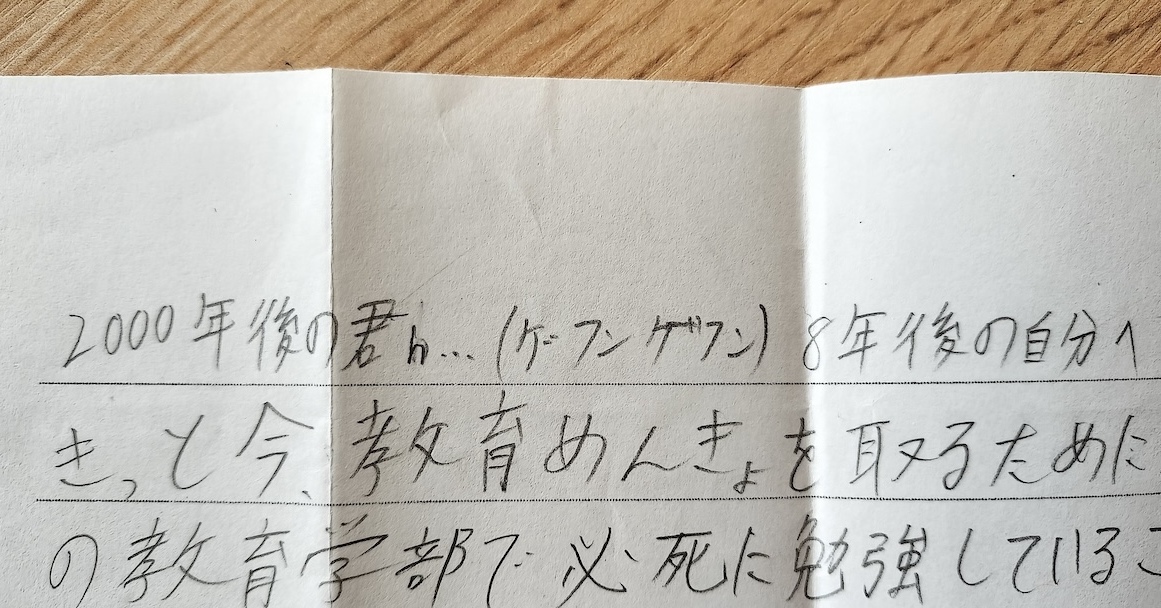 2000年後の君h...(ゲーフンゲフン) 8年後の自分へ
きっと今、教育めんきょを取るために
の教育学部で必死に勉強しているこ